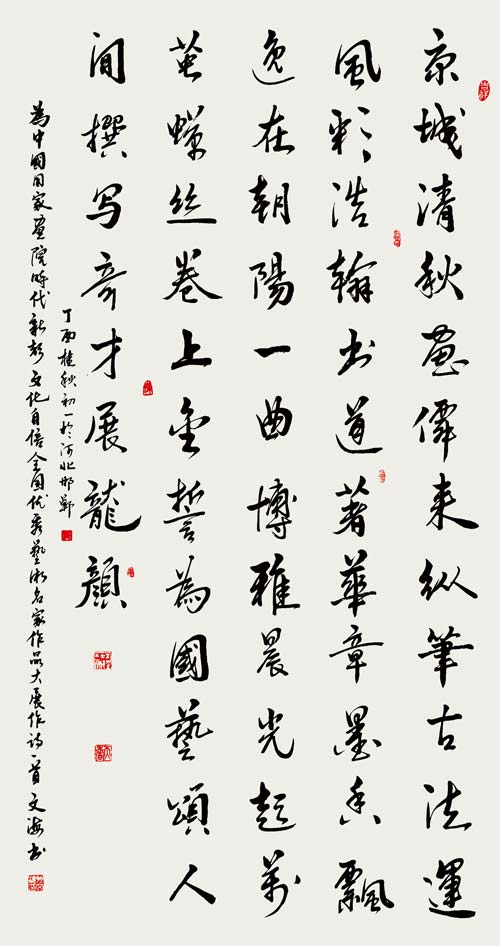 京城清秋畫儒来纵筆古法運
風彩浩翰书道著華章墨香飄
逸在朝陽一曲博雅晨光起萬
丝卷上金誓為國藝頌人
间撰写奇才展龍顏
丁酉桂秋初一於河北邯鄲
為中國国家畫院時代新彰文化自信全国优秀藝術名家作品大展作诗一首 文海书